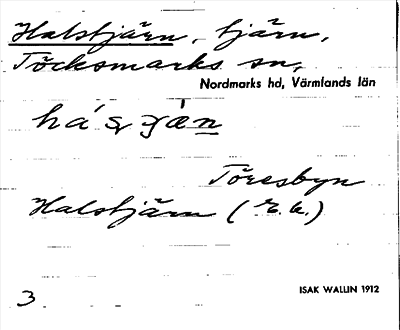 Halstjärn, tjärn,
Töcksmarks sn,
Nordmarks hd, Värmlands län
Töresbyn
Halstjärn (r.a.)
3
ISAK WALLIN 1912